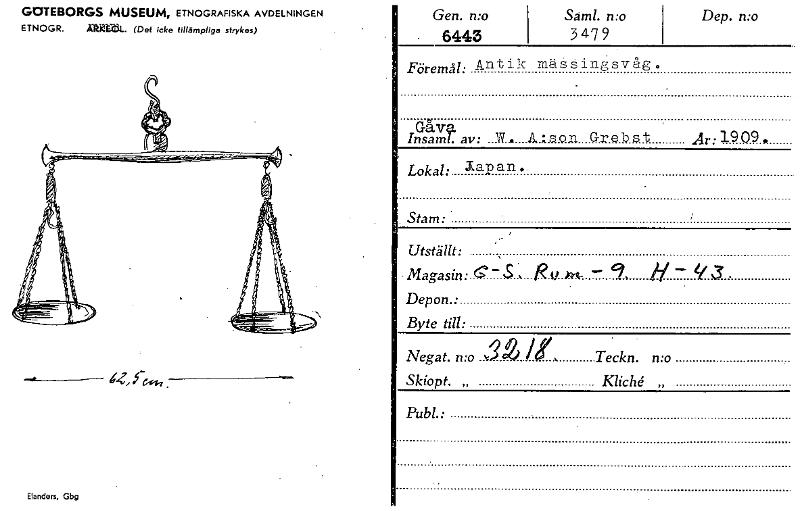 GÖTEBORGS MUSEUM, ETNOGRAFISKA AVDELNINGEN
ETNOGR. ARKEOL. (Det icke tillämpliga strykes)
62,5 cm.
Elanders, Gbg
Gen. n:o Saml. n:o Dep. n:o
6443 3479
Föremål: Antik mässingsvåg.
Gåva
Insaml. av: W. A:son Grebst År: 1909.
Lokal: Japan.
Stam:
Utställt:
Magasin: G-S. Rum - 9. H-43.
Depon.:
Byte till:
Negat. n:o 3218. Teckn. n:o
Skiopt. „ Kliché „
Publ.: